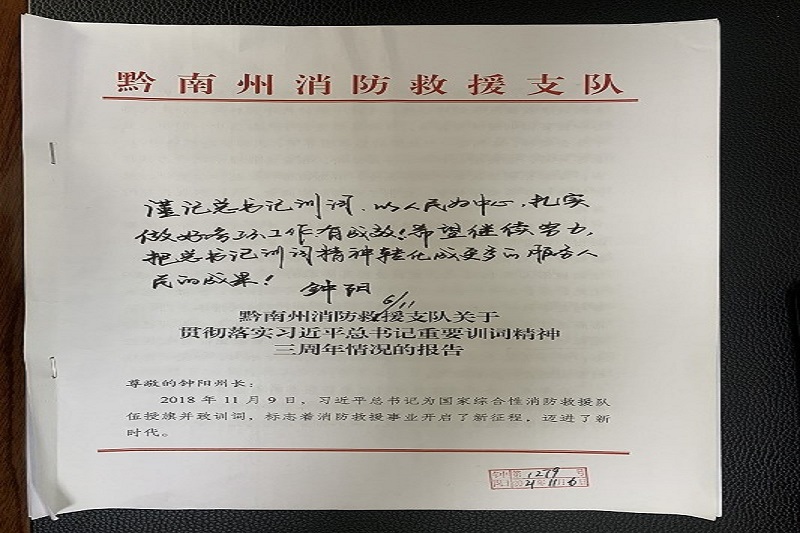 黔南州消防救援支队
谨记总书记训词、以人民为中心，扎实
做好各项工作有成效！希望继续努力，
把总书记训词精神转化成更多的服务人
民的成果！
钟阳
6/11
黔南州消防救援支队关于
贯彻落实习近平总书记重要训词精神
三周年情况的报告
尊敬的钟阳州长：
2018 年 11 月 9 日，习近平总书记为国家综合性消防救援队
伍授旗并致训词，标志着消防救援事业开启了新征程，迈进了新
时代。
第1279号
21年11月6日